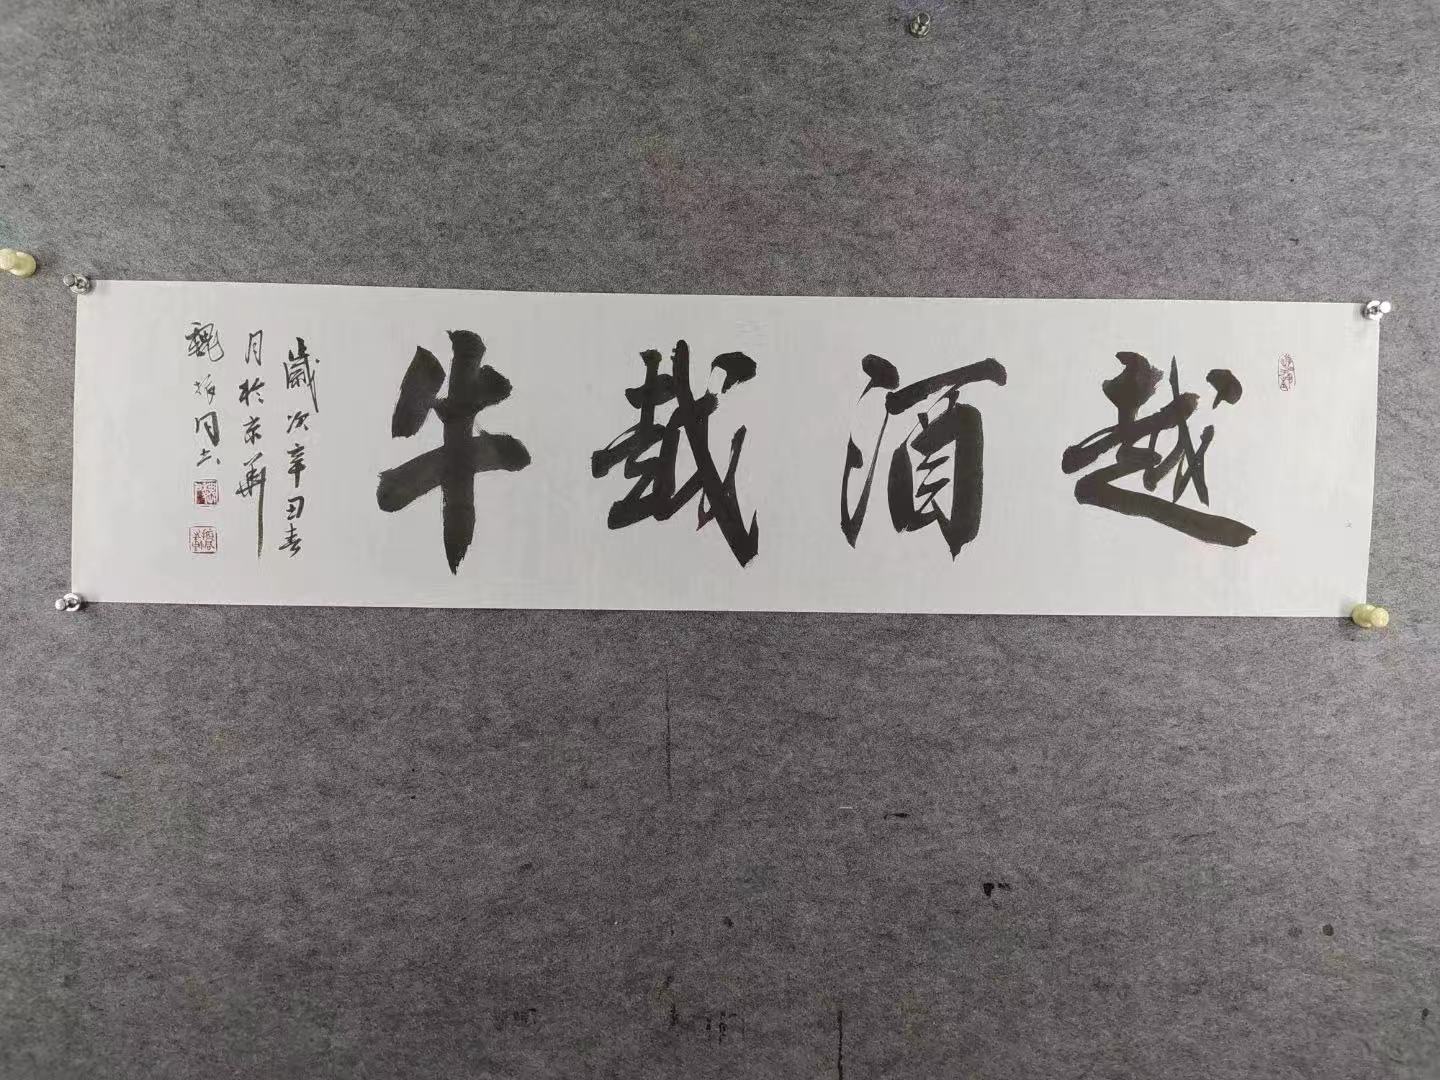 越酒越牛
歲次辛丑春
月於京華
魏